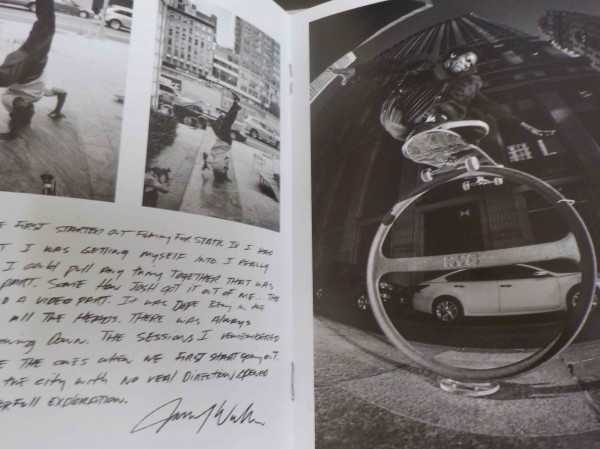 FIRST STARTED OUT FILMING FOR STATIC IV I HAD
I WAS GETTING MYSELF INTO. I REALLY
I COULD PULL ANY THING TOGETHER THAT WAS
PART. SOME HOW JOSH GOT IT OUT OF ME... THE
A VIDEO PART. IT WAS DOPE BEING IN THE
ALL THE HEADS. THERE WAS ALWAYS
GOING DOWN. THE SESSIONS I REMEMBERED
THE ONES WHEN WE FIRST START GOING OUT.
THE CITY WITH NO REAL DIRECTION, OPENED
EXPLORATION.
NYC